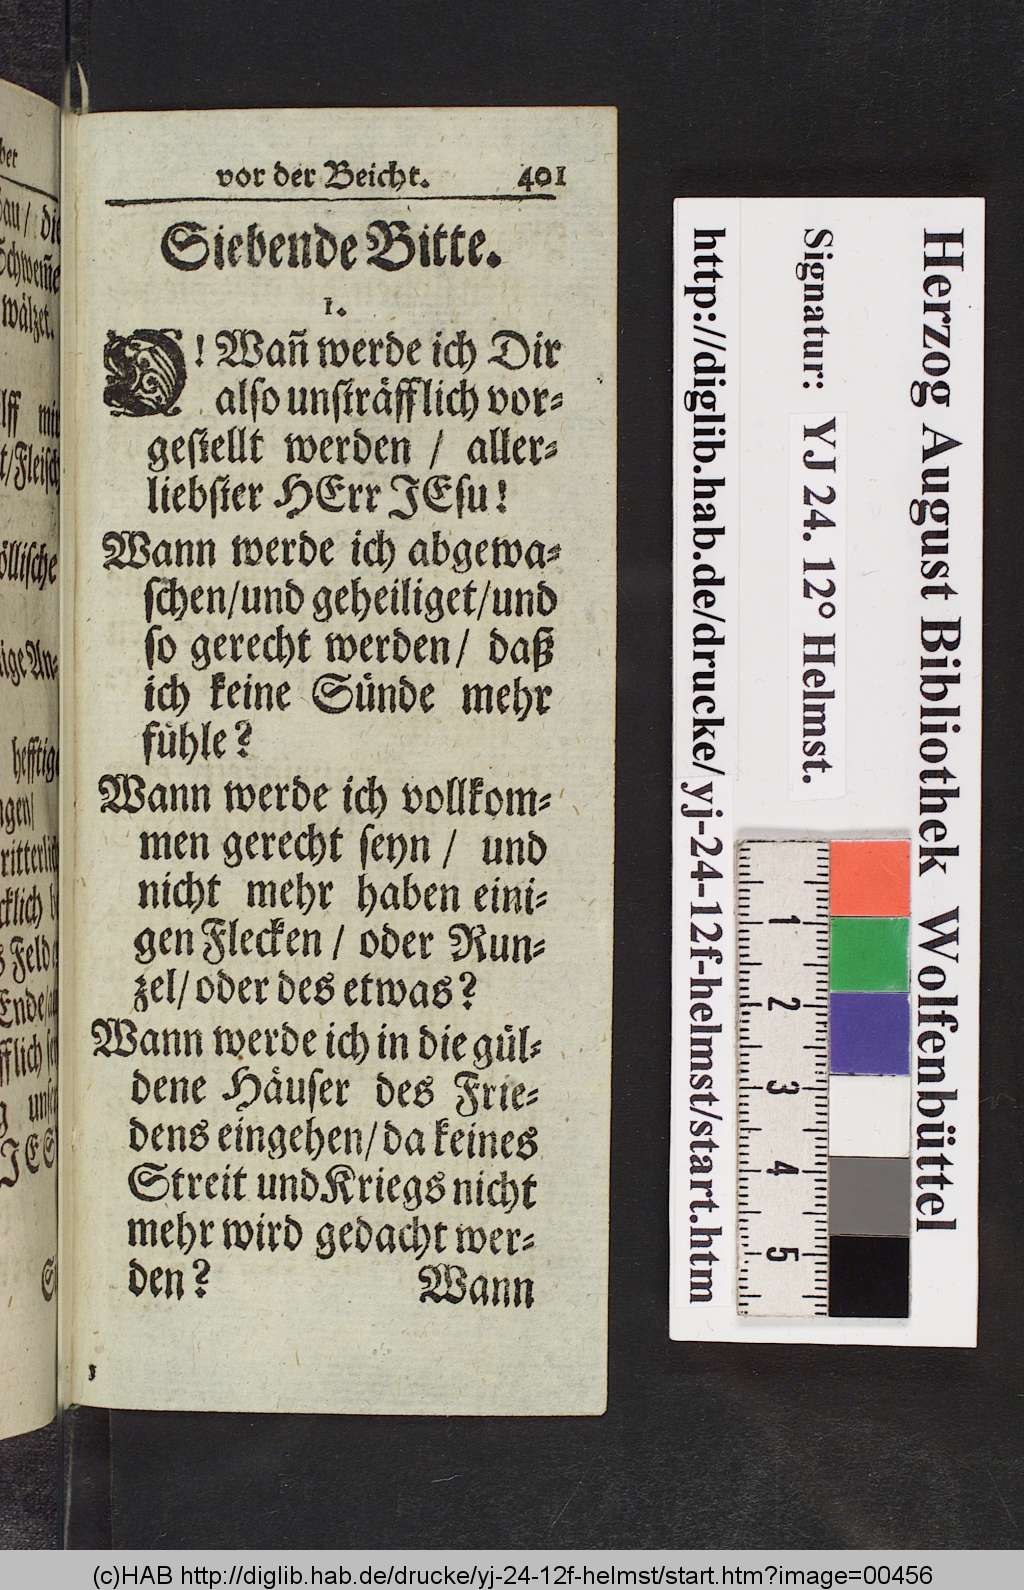 vor der Beicht. 401
Siebende Bitte.
1.
O! Wañ werde ich Dir
also unsträfflich vor-
gestellt werden / aller-
liebster HErr JEsu!
Wann werde ich abgewa-
schen/und geheiliget/und
so gerecht werden/ daß
ich keine Sünde mehr
fühle?
Wann werde ich vollkom-
men gerecht seyn / und
nicht mehr haben eini-
gen Flecken / oder Run-
zel/ oder des etwas?
Wann werde ich in die gül-
dene Häuser des Frie-
dens eingehen/ da keines
Streit und Kriegs nicht
mehr wird gedacht wer-
den? Wann
Herzog August Bibliothek Wolfenbüttel
Signatur: YJ 24. 12° Helmst.
http://diglib.hab.de/drucke/yj-24-12f-helmst/start.htm
1
2
3
4
5
bet
die
Schweiñe
wälzet.
mir
t/Fleisch
öllische
hefftige
ritterlich
Feld
Ende
JES
(c)HAB http://diglib.hab.de/drucke/yj-24-12f-helmst/start.htm?image=00456